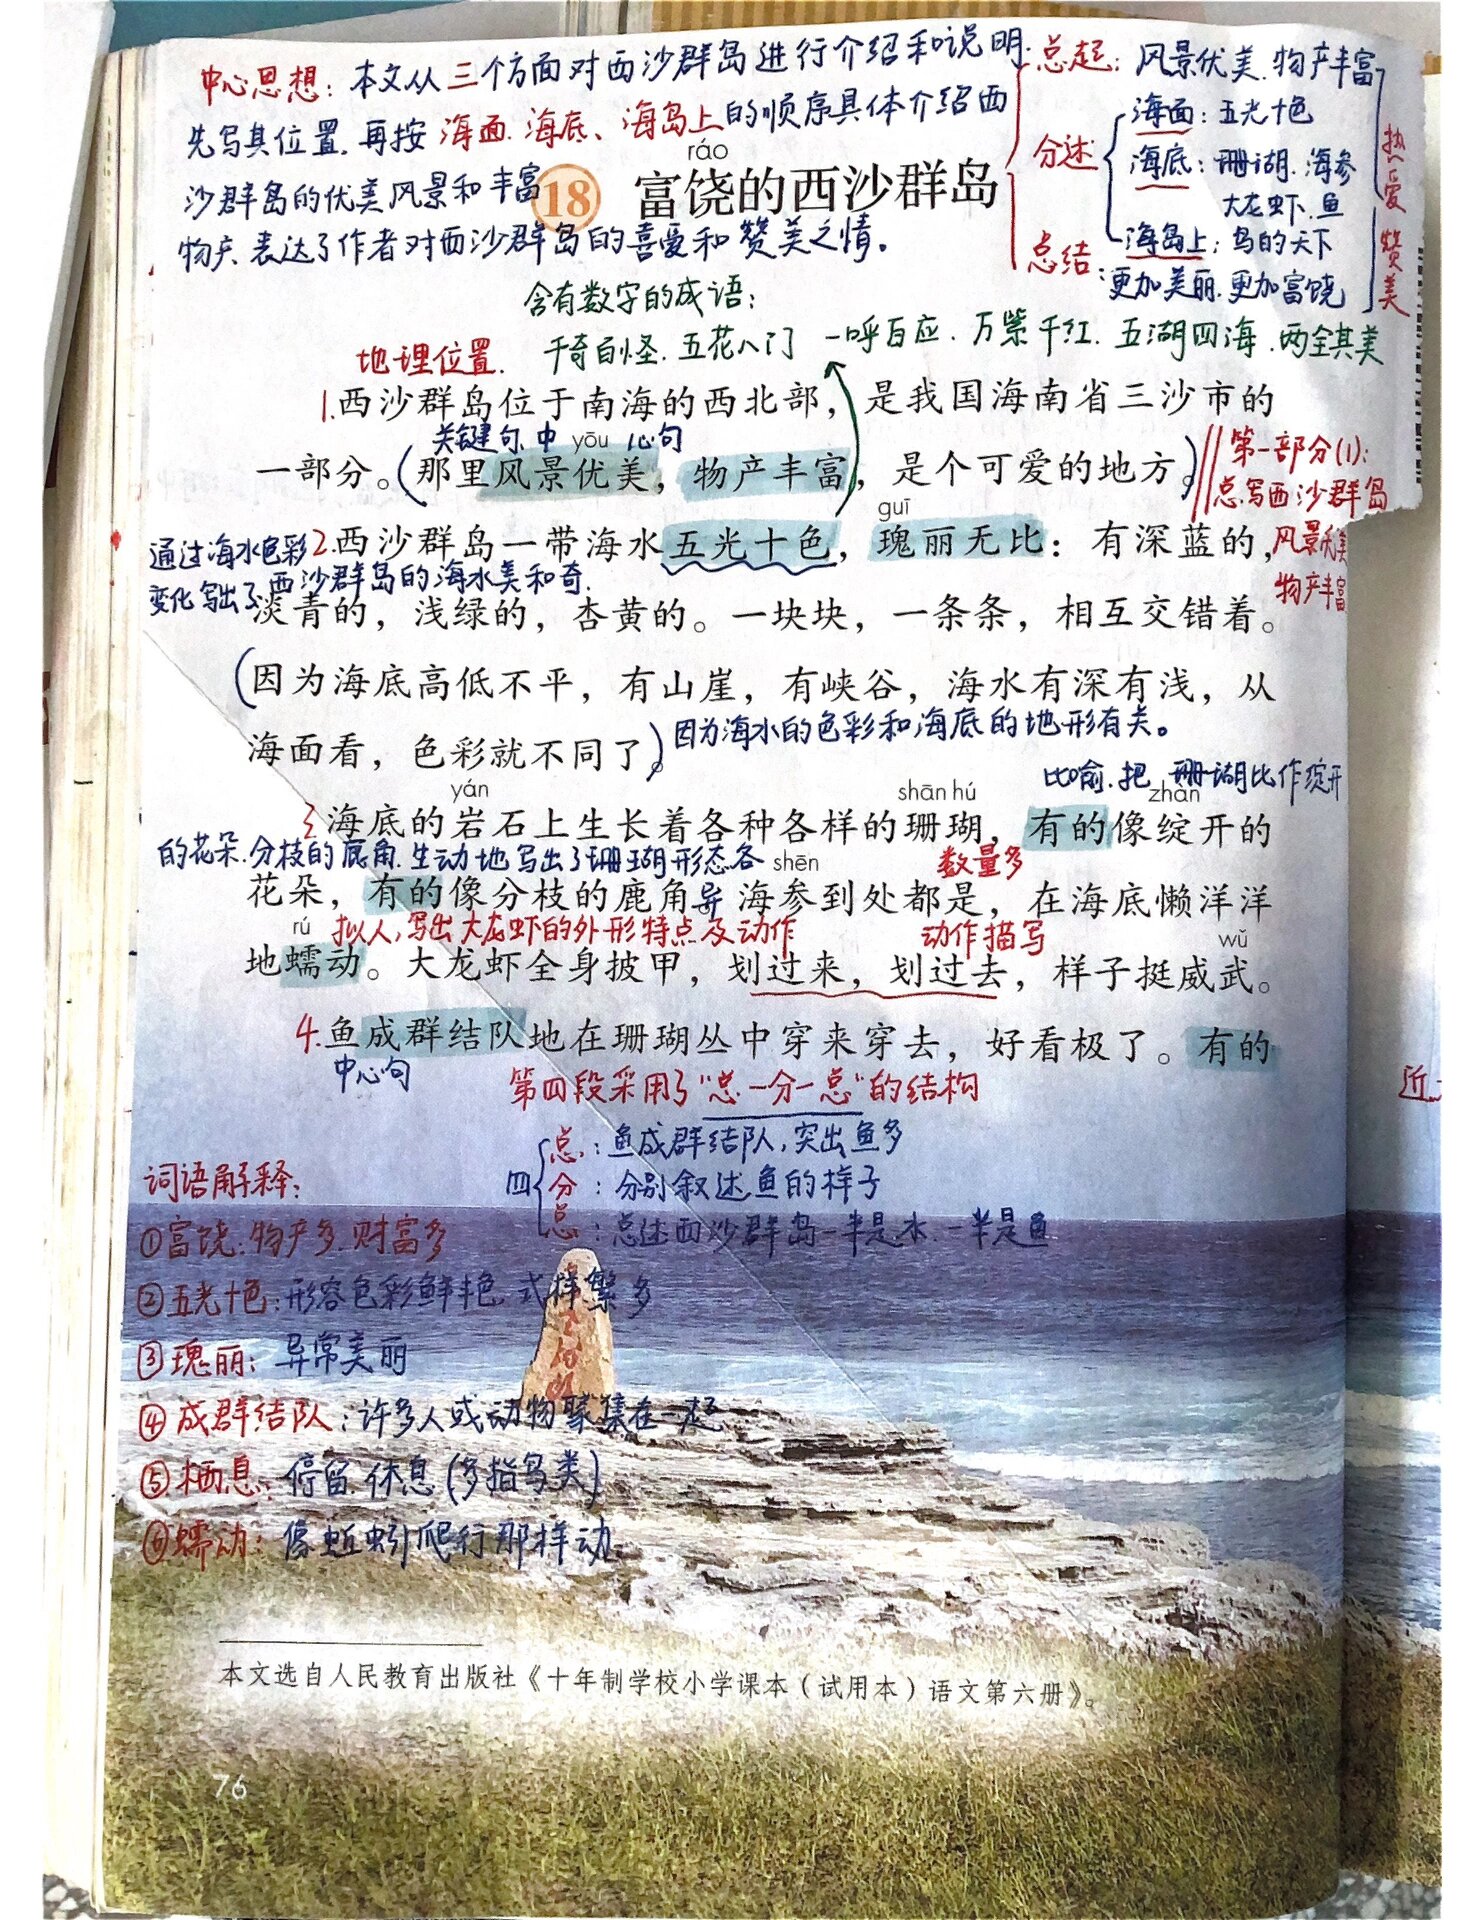 中心思想：本文从三个方面对西沙群岛进行介绍和说明.
先写其位置.再按 海面.海底、海岛上的顺序具体介绍西
沙群岛的优美风景和丰富
物产.表达了作者对西沙群岛的喜爱和赞美之情。
总起：风景优美.物产丰富
分述
海面：五光十色
海底：珊瑚.海参
大龙虾.鱼
海岛上：鸟的天下
总结：更加美丽.更加富饶
热爱 赞美
ráo
18 富饶的西沙群岛
含有数字的成语：
千奇百怪.五花八门 一呼百应.万紫千红.五湖四海.两全其美
地理位置.
1.西沙群岛位于南海的西北部，是我国海南省三沙市的
关键句.中心句
yōu
一部分。(那里风景优美，物产丰富，是个可爱的地方。)
第一部分(1)：
总写西沙群岛
风景优美
物产丰富
guī
2.西沙群岛一带海水五光十色，瑰丽无比：有深蓝的，
通过海水色彩
变化写出了西沙群岛的海水美和奇.
淡青的，浅绿的，杏黄的。一块块，一条条，相互交错着。
(因为海底高低不平，有山崖，有峡谷，海水有深有浅，从
海面看，色彩就不同了。)
因为海水的色彩和海底的地形有关。
比喻.把 珊瑚比作绽开
yán shān hú zhàn
3 海底的岩石上生长着各种各样的珊瑚，有的像绽开的
的花朵.分枝的鹿角.生动地写出了珊瑚形态各异
shēn
数量多
花朵，有的像分枝的鹿角。海参到处都是，在海底懒洋洋
拟人,写出大龙虾的外形特点及动作
动作描写
rú wǔ
地蠕动。大龙虾全身披甲，划过来，划过去，样子挺威武。
4.鱼成群结队地在珊瑚丛中穿来穿去，好看极了。有的
中心句
第四段采用了“总一分一总”的结构
四
总：鱼成群结队,突出鱼多
分：分别叙述鱼的样子
总：总述西沙群岛一半是水.一半是鱼
词语解释：
①富饶：物产多.财富多
②五光十色：形容色彩鲜艳.式样繁多
③瑰丽：异常美丽
④成群结队：许多人或动物聚集在一起
⑤栖息：停留.休息(多指鸟类)
⑥蠕动：像蚯蚓爬行那样动.
本文选自人民教育出版社《十年制学校小学课本（试用本）语文第六册》。
76
近